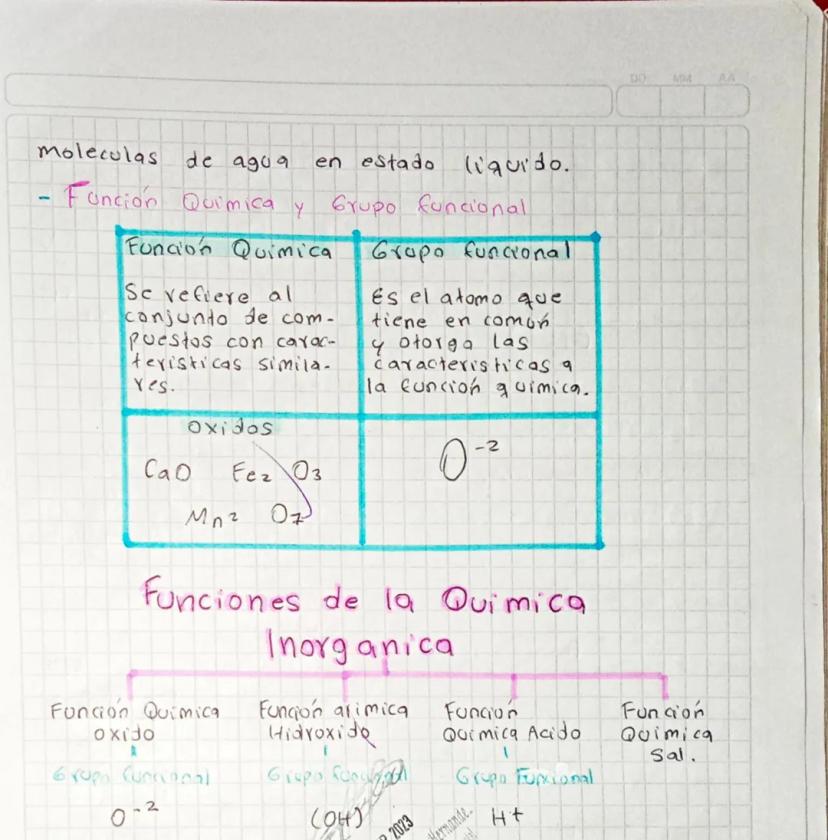 DD MM AA
moleculas de agua en estado líquido.
- Función Química y Grupo funcional
Función Química
Se refiere al
conjunto de com-
puestos con carac-
teristicas simila-
res.
Grupo funcional
Es el atomo que
tiene en común
y otorga las
caracteristicas a
la función quimica.
oxidos
CaO Fe2 O3
Mn2 O7
O-2
Funciones de la Quimica
Inorganica
Función Química
oxido
Grupo funcional
O-2
Función química
Hidroxido
Grupo funcional
(OH)
Función
Química Acido
Grupo Funcional
H+
Función
Química
Sal.
2023